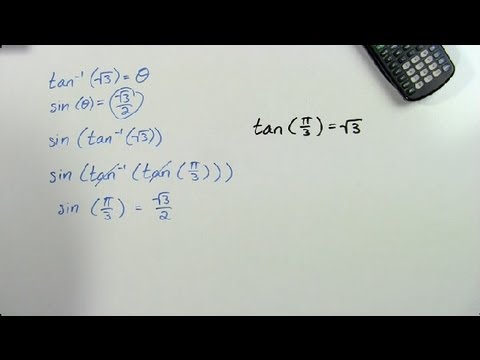 tan⁻¹(√3) = θ
sin(θ) = √3/2
sin(tan⁻¹(√3))
sin(tan⁻¹(tan(π/3)))
sin(π/3) = √3/2
tan(π/3) = √3